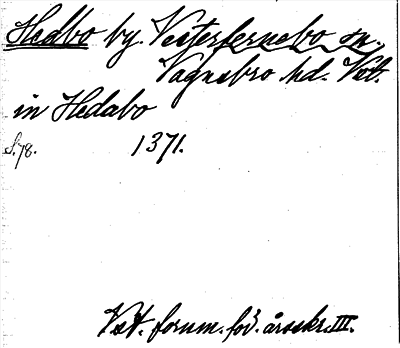 Hedbo by. Västerfernebo sn.
Vagnsbro hd. Vstl.
in Hedabo
S.78. 1371.
Vst. fornm. för. årsskr. III.